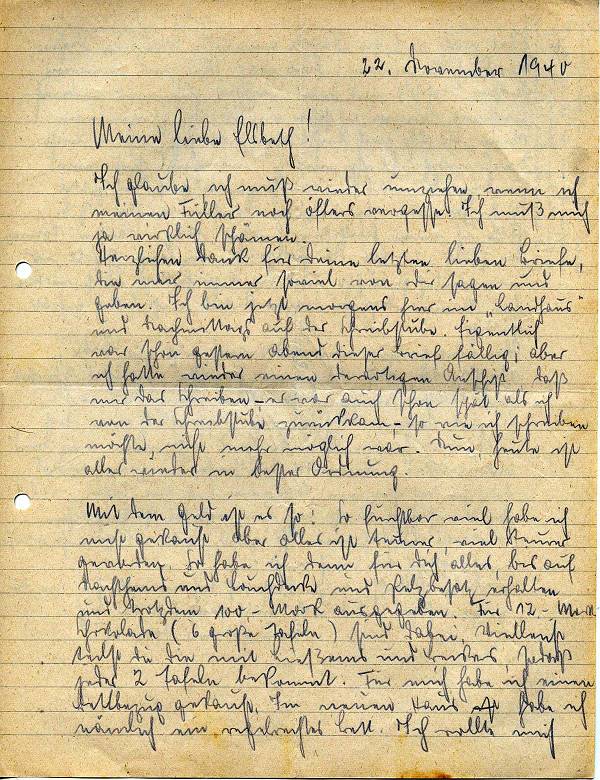 22. November 1940
Meine liebe Elsbeth!
Ich glaube ich muß wieder umziehen, wenn ich
meinen Füller noch öfters vergesse. Ich muß mich
ja wirklich schämen.
Herzlichen Dank für Deine letzten lieben Briefe,
die mir immer soviel von dir sagen und
geben. Ich bin jetzt morgens hier im „Landhaus"
und Nachmittags auf der Schreibstube. Eigentlich
war schon gestern Abend dieser Brief fällig; aber
ich hatte wieder einen derartigen daß
mir das Schreiben – es war auch schon spät als ich
von der Schreibstube zurückkam, – so wie ich schreiben
möchte, nicht mehr möglich war. Nun, heute ist
alles wieder in bester Ordnung.
Mit dem Geld ist es so: So furchtbar viel habe ich
nicht gekauft aber alles ist teurer, viel teurer
geworden. So habe ich denn für Dich alles, bis auf
Nachthemd und und Pelzbesatz erhalten
und trotzdem 100,- Mark ausgegeben. Für 12,- Mark
Schokolade (6 große Tafeln) sind dabei. Vielleicht
teilst du die mit und sodaß
jeder 2 Tafeln bekommt. Für mich habe ich einen
Bettbezug gekauft. Im neuen Haus habe ich
nämlich ein regelrechtes Bett. Ich wollte mich